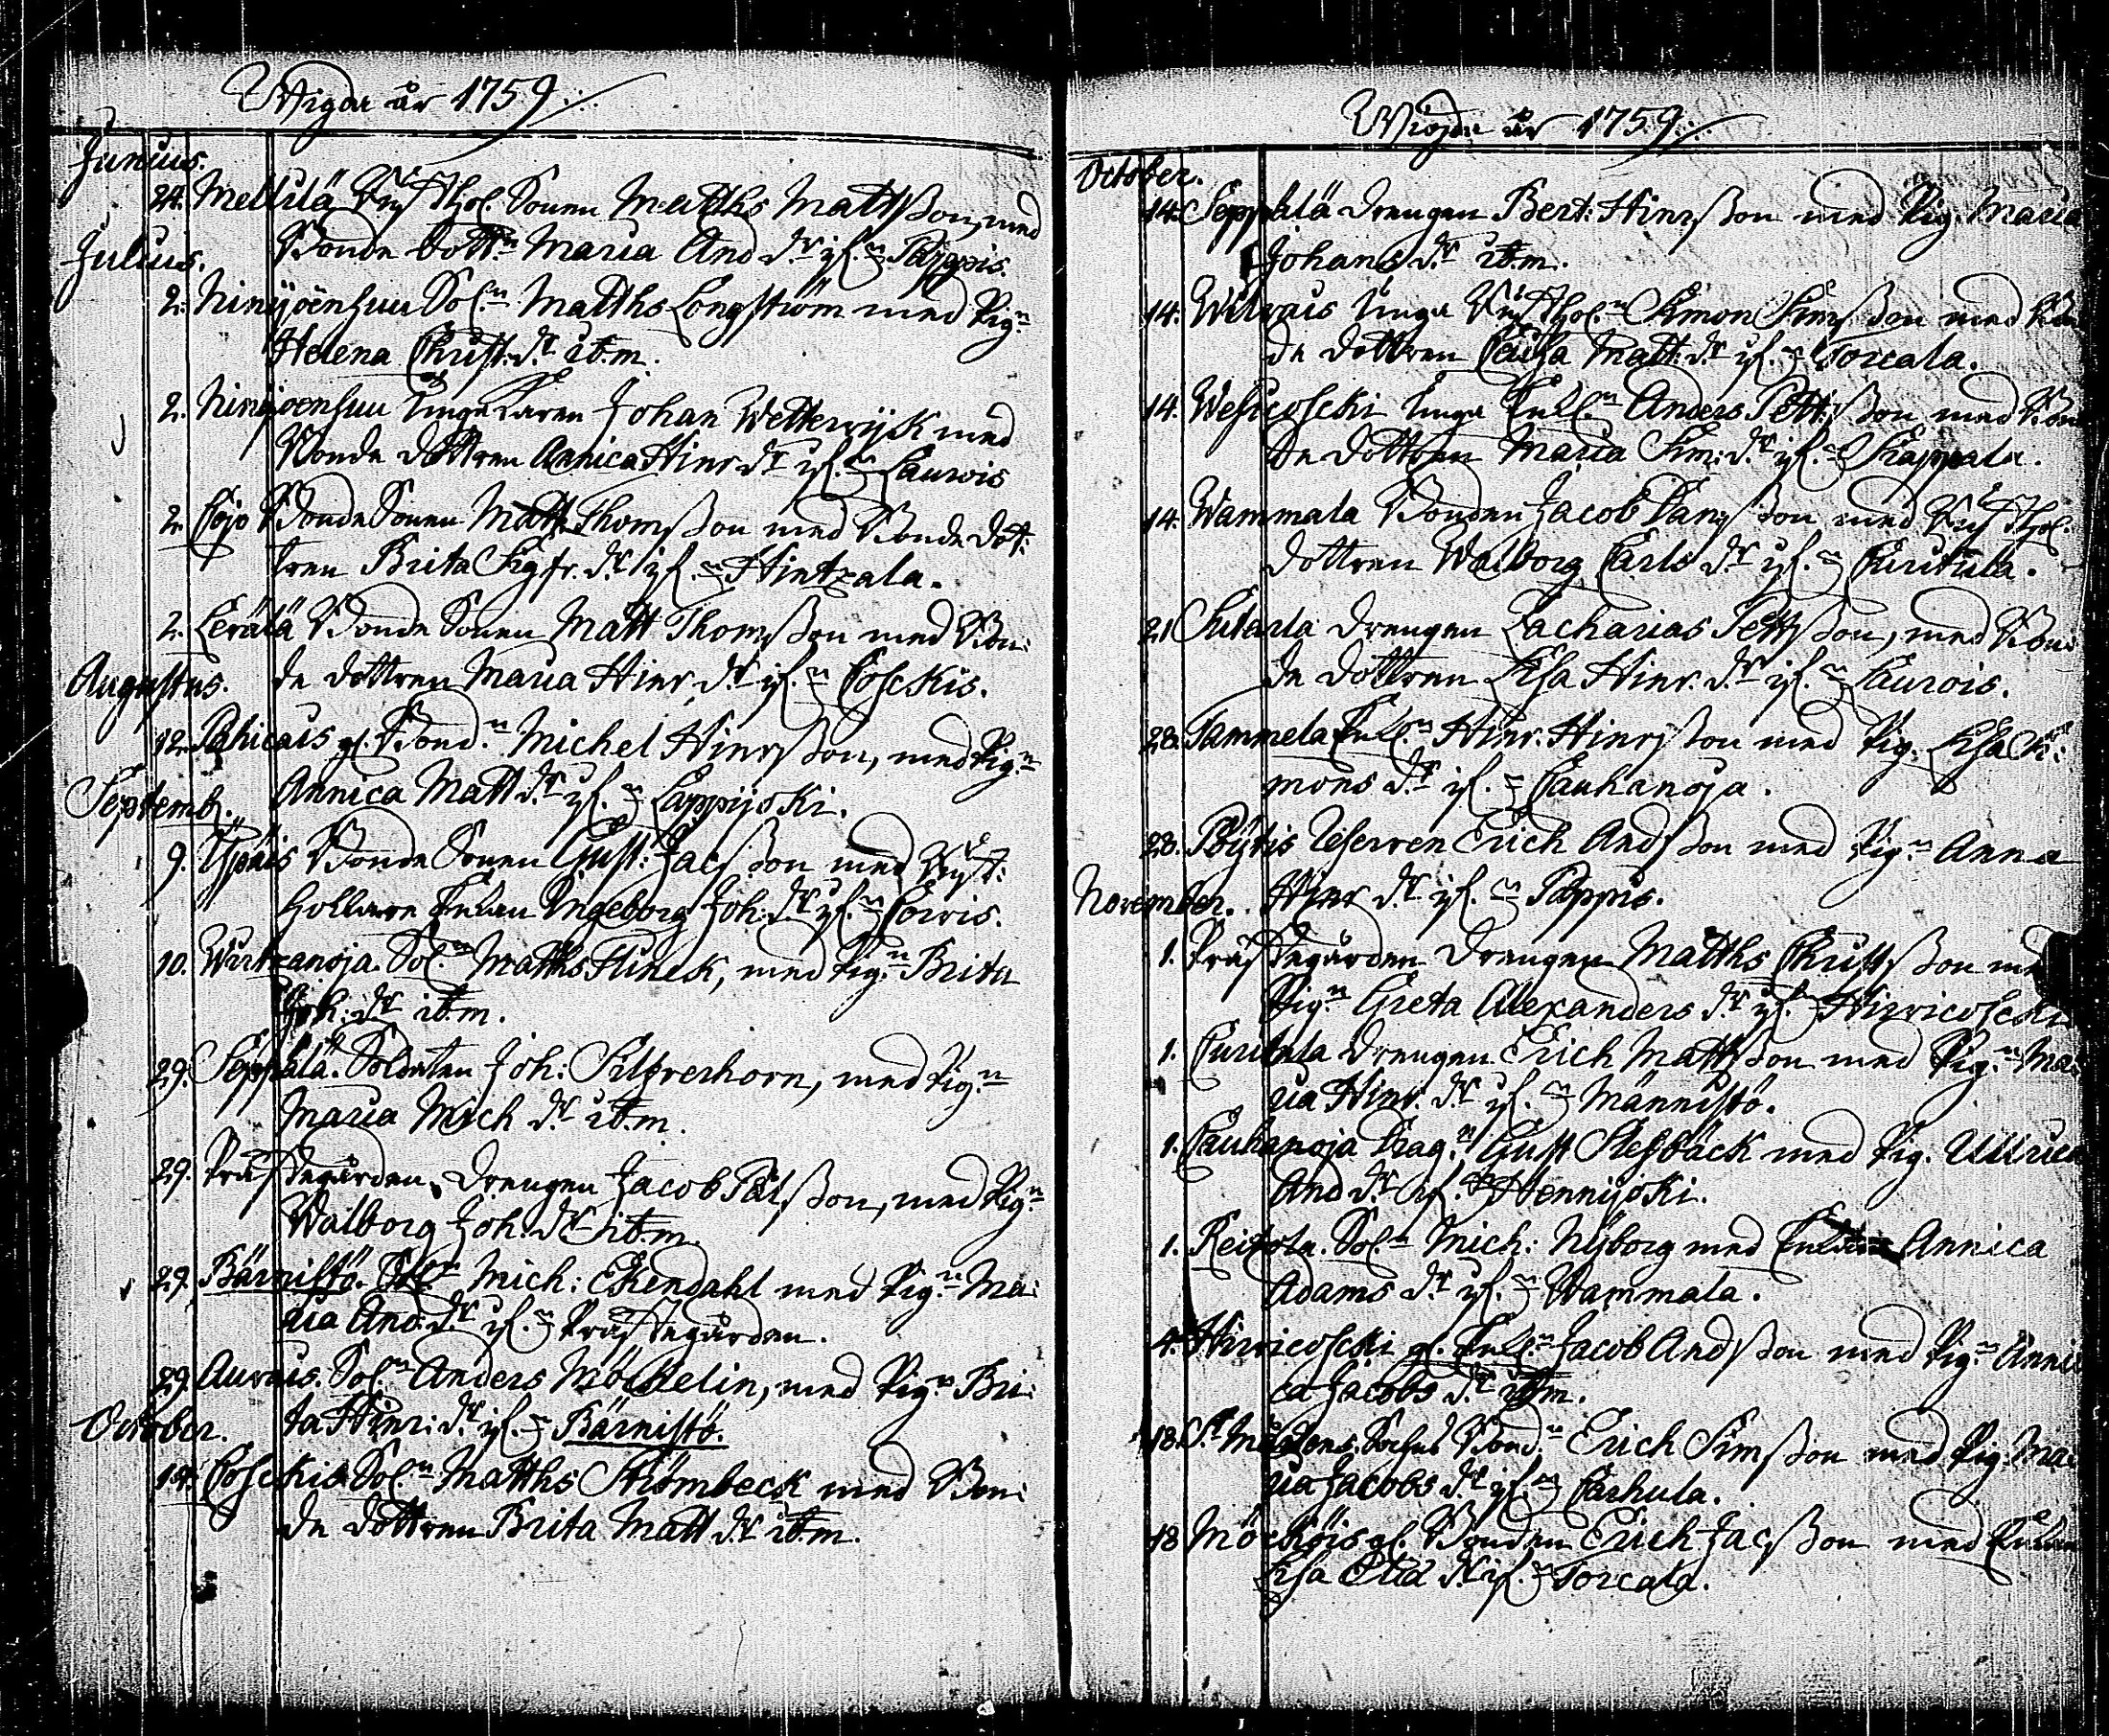 Wigde år 1759
Junius.
24. Mellilä Rustthol. Sonen Matths Mattsson, med
Bonde dott:n Maria And d:r if:n Pappis.
Julius.
2. Ninijöensuu Sol:n Matths Longström med Pig:n
Helena Christ: d:r it.m.
2. Ninijoensuu Unge Karen Johan Wetterwijk med
Bonde dottren Annica Hinr d:r if:n Laurois
2. Cojo Bonde Sonen Matt Thomsson med Bonde dot:
tren Brita Sigfr. d:r if:n Hintzala.
2. Lerälä Bonde Sonen Matt Thomsson med Bon:
de dottren Maria Hinr. d:r if:n Cosckis.
Augustus.
12. Pahicais gl. Bond:n Michel Hinrsson, med Pig:n
Annica Matt d:r if:n Lappijoki.
Septemb.
9. Ypäis Bonde Sonen Gust: Jacsson med Rust:
hollare Enkan Ingeborg Joh: d:r if:n Corvis.
10. Wirtzanoja. Sol:n Matths Flinck, med Pig:n Brita
Joh: d:r it.m.
29. Seppälä. Soldaten Joh: Silfverhorn, med Pig:n
Maria Mich d:r it.m.
29. Prästegården. Drengen Jacob Pålsson, med Pig:n
Walborg Joh. d:r it.m.
29. Bärnistö. Sol:n Mich: Ekendahl med Pig:n Ma:
ria And: d:r if:n Prästegården.
29. Aurais. Sol:n Anders Möckelin, med Pig:n Bri:
ta Hinr: d:r if:n Bärnistö.
October.
14. Cosckis Sol:n Matths Strömbeck med Bon:
de dottren Brita Matt d:r it.m.
Wigde år 1759
October.
14. Seppälä drengen Bert: Hinrsson med Pig. Maria
Johans d:r it.m.
14. Wilvais Unge Rustthol:n Simon Simsson med Bon
de dottren Caisa Matt: d:r if:n Torcala.
14. Wesicoscki Unge Enkl:n Anders Pettsson med Bon
de dottren Maria Sim: d:r if:n Kappala.
14. Wammala Bonden Jacob Dansson med Rustthol.
dottren Walborg Carls d:r if:n Curitula.
21 Sutarla drengen Zacharias Pettsson, med Bon:
de dottren Lisa Hinr. d:r if:n Laurois.
28. Tammela Enkl:n Hinr. Hinrsson med Pig. Lisa Si:
mons d:r if:n Cauhanoja.
28. Pöytis Erich Andsson med Pig:n Anna
Hinr d:r if:n Pappis.
November.
1. Prästegården drengen Matths Christsson me
Pig:n Greta Alexanders d:r if:n Hirvicoscki
1. Curitula drengen Erich Mattsson med Pig:n Ma
ria Hinr. d:r if:n Männistö.
1. Cauhanoja Drag:n Gust Stesbäck med Pig. Ullrica
And d:r if:n Hennijoki.
1. Keikola. Sol:n Mich: Nyborg med Annica
Adams d:r if:n Wammala.
4. Hirvicoscki gl. Enkl:n Jacob Andsson med Pig:n Anni
ca Jacobs d:r it.m.
18. S:t Mårtens Sochn Bond:n Erich Simsson med Pig. Ma
ria Jacobs d:r if:n Carhula.
18 Möcköis gl. Bonden Erich Jacsson med Enkan
Lisa d:r if:n Torcala.